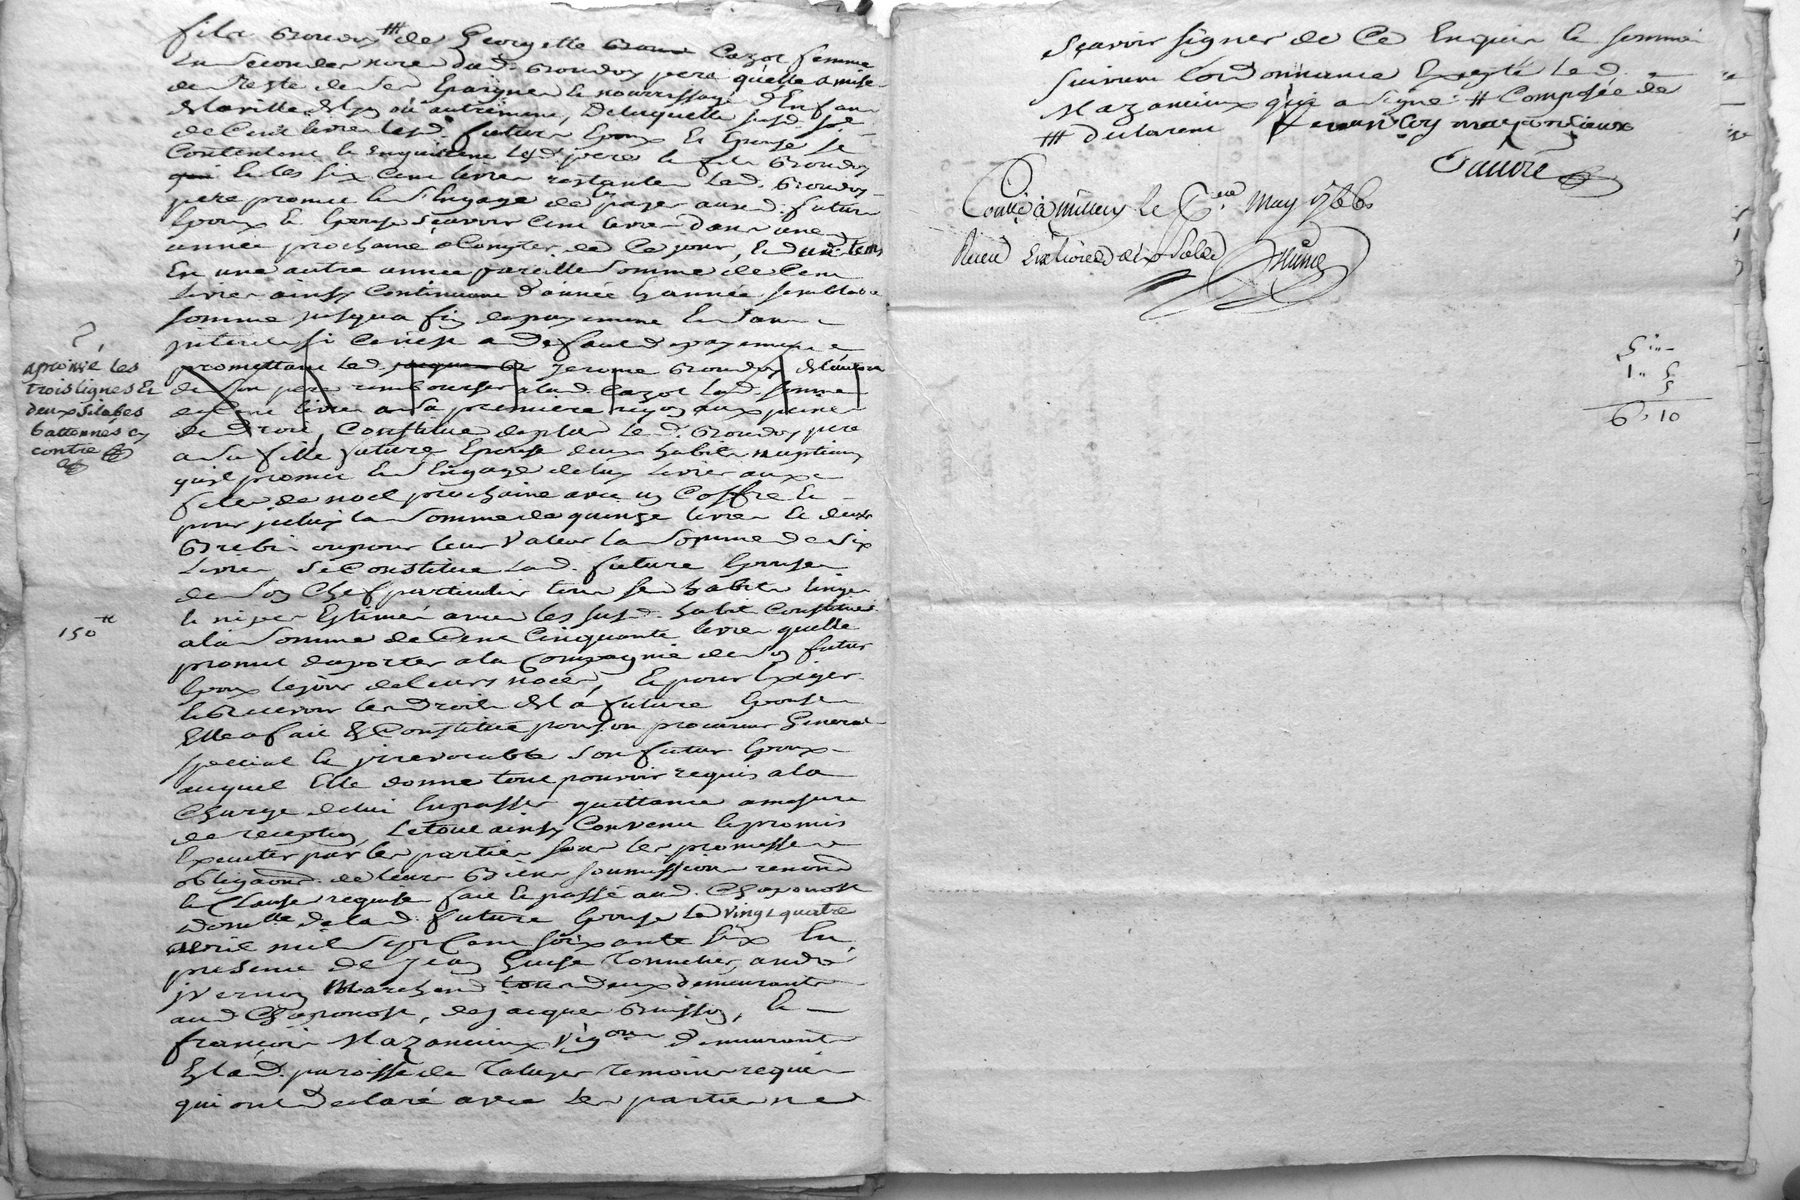 fils Brondoy ''' de Georgette Cazot femme
En secondes noces dud. Brondoy pere qu'elle a mise
de reste de ses Epargnes de nourrissage d'Enfans
de la ville de Lyon ou autrement, de laquelle susd. soe.
de Cent livres lesd. futurs Epoux Et Epouse se
Contentent Et En quittent lesd. pere Et fils Brondoy
Et les six Cent livres restantes led. Brondoy
pere promet Et s'Engage de payer auxd. futurs
Epoux Et Epouse sçavoir Cent livres dans une
année prochaine a Compter de Ce jour, Et
En une autre année pareille somme de Cent
Livres ainsy Continuant d'année En année semblable
somme jusqu'a fin de payement Et sans
interest si Ce n'est a deffaut de payement
promettant led. Jerome Brondoy
de son pere rembourser a lad. Cazot lad. somme
de Cent livres a sa premiere requon aux peines
de Droit, Constitue de plus led. Brondoy pere
a sa fille future Epouse deux habits nuptiaux
qu'il promet Et s'Engage delivrer aux
fetes de noel prochaine avec un Coffre Et
pour jceluy la somme de quinze livres Et deux
Brebis ou pour leur valeur la somme de six
Livres se Constitue lad. future Epouse
de son Chef particulier tous ses habits linges
Et nipes Estimés avec les susd. habits Constitués
a la somme de Cent Cinquante livres quelle
promet d'aporter a la Compagnie de son futur
Epoux le jour de leurs noces, Et pour Exiger
Et Recevoir les Droits de la future Epouse
Elle a fait Et Constitué pour son procureur General
special Et jrrevocable son futur Epoux
auquel Elle donne tout pouvoir requis a la
Charge de lui En passer quittance a mesure
de reception, Le tout ainsy Convenu Et promis
Executer par les parties sous les promesses
obligaons. de leurs Biens soumissions renond.
Et Clauses requises fait Et passé aud. Chaponost
Domlle. de lad. future Epouse Le vingt quatre
avril mil sept Cent soixante six En
presence de Jean Guise Tonnelier, andré
jvernoy Marchand tous deux demeurants
aud. Chaponost, de Jacques Buisson, Et
françois Mazancieux Vigons demeurants
En lad. paroisse de Taluyer Temoins requis
qui ont declaré avec les parties ne
aprouvé les
trois lignes Et
deux silabes
battonnés cy
contre
150 ''
sçavoir signer de Ce Enquis Et sommés
suivant l'ordonnance Excepté led.
Mazancieux qui a signé. # Composée de
''' declarent francoy mazansieux
Favre
Conllé a Millery le 6eme. May 1766.
Receu six livres dix sols
5 ''
1 '' 5
5
6, 10